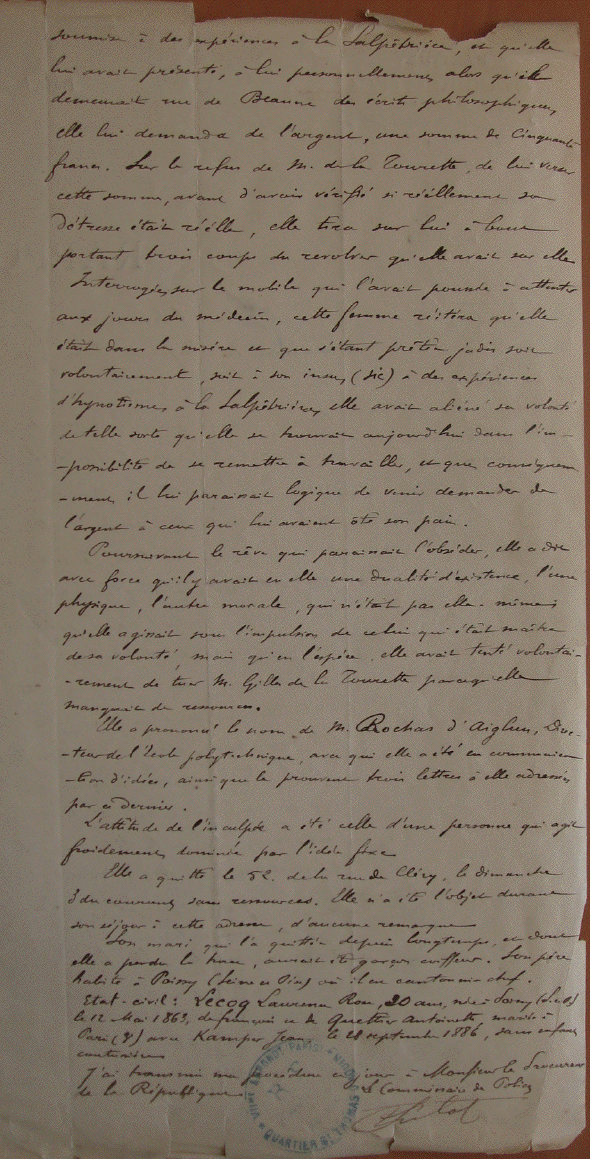 soumise à des expériences à la Salpêtrière, et qu'elle
lui avait présenté, à lui personnellement, alors qu'il
demeurait rue de Beaune des écrits philosophiques,
elle lui demanda de l'argent, une somme de Cinquante
francs. Sur le refus de M. de la Tourette, de lui verser
cette somme, avant d'avoir vérifié si réellement sa
détresse était réelle, elle tira sur lui à bout
portant trois coups du revolver qu'elle avait sur elle
Interrogée, sur le mobile qui l'avait poussée à attenter
aux jours du médecin, cette femme réitéra qu'elle
était dans la misère et que s'étant prêtée jadis soit
volontairement, soit à son insu, (sic) à des expériences
d'hypnotisme, à la Salpêtrière, elle avait aliéné sa volonté
de telle sorte qu'elle se trouvait aujourd'hui dans l'im-
-possibilité de se remettre à travailler, et que conséquem
-ment, il lui paraissait logique de venir demander de
l'argent à ceux qui lui avaient ôté son pain.
Poursuivant le rêve qui paraissait l'obséder, elle a dit
avec force qu'il y avait en elle une dualité d'existence, l'une
physique, l'autre morale, qui n'était pas elle-même
qu'elle agissait sous l'impulsion de celui qui était maître
de sa volonté, mais qu'en l'espèce, elle avait tenté volontai-
-rement de tuer M. Gilles de la Tourette parce qu'elle
manquait de ressources.
Elle a prononcé le nom de M. Rochas d'Aiglun, Direc-
-teur de l'Ecole polytechnique, avec qui elle a été en communica
-tion d'idées, ainsi que le prouvent trois lettres à elle adressées
par ce dernier.
L'attitude de l'inculpée a été celle d'une personne qui agit
froidement, dominée par l'idée fixe
Elle a quitté le 52 de la rue de Cléry, le dimanche
3 du courant, sans ressources. Elle n'a été l'objet durant
son séjour à cette adresse, d'aucune remarque
Son mari qui l'a quittée depuis longtemps, et dont
elle a perdu la trace, aurait été garçon coiffeur. Son père
habite à Poissy (Seine et Oise) où il est cantonnier chef.
Etat-civil: Lecoq Laurence Rose, 30 ans, née à Poissy (S. et O)
le 12 Mai 1863, de françois et de Antoinette, mariée à
Paris avec Kamper Jean, le 28 septembre 1886, sans enfant
couturière
J'ai transmis ma procédure ce jour à Monsieur le Procureur
de la République
Le Commissaire de Police
QUARTIER ST THOMAS